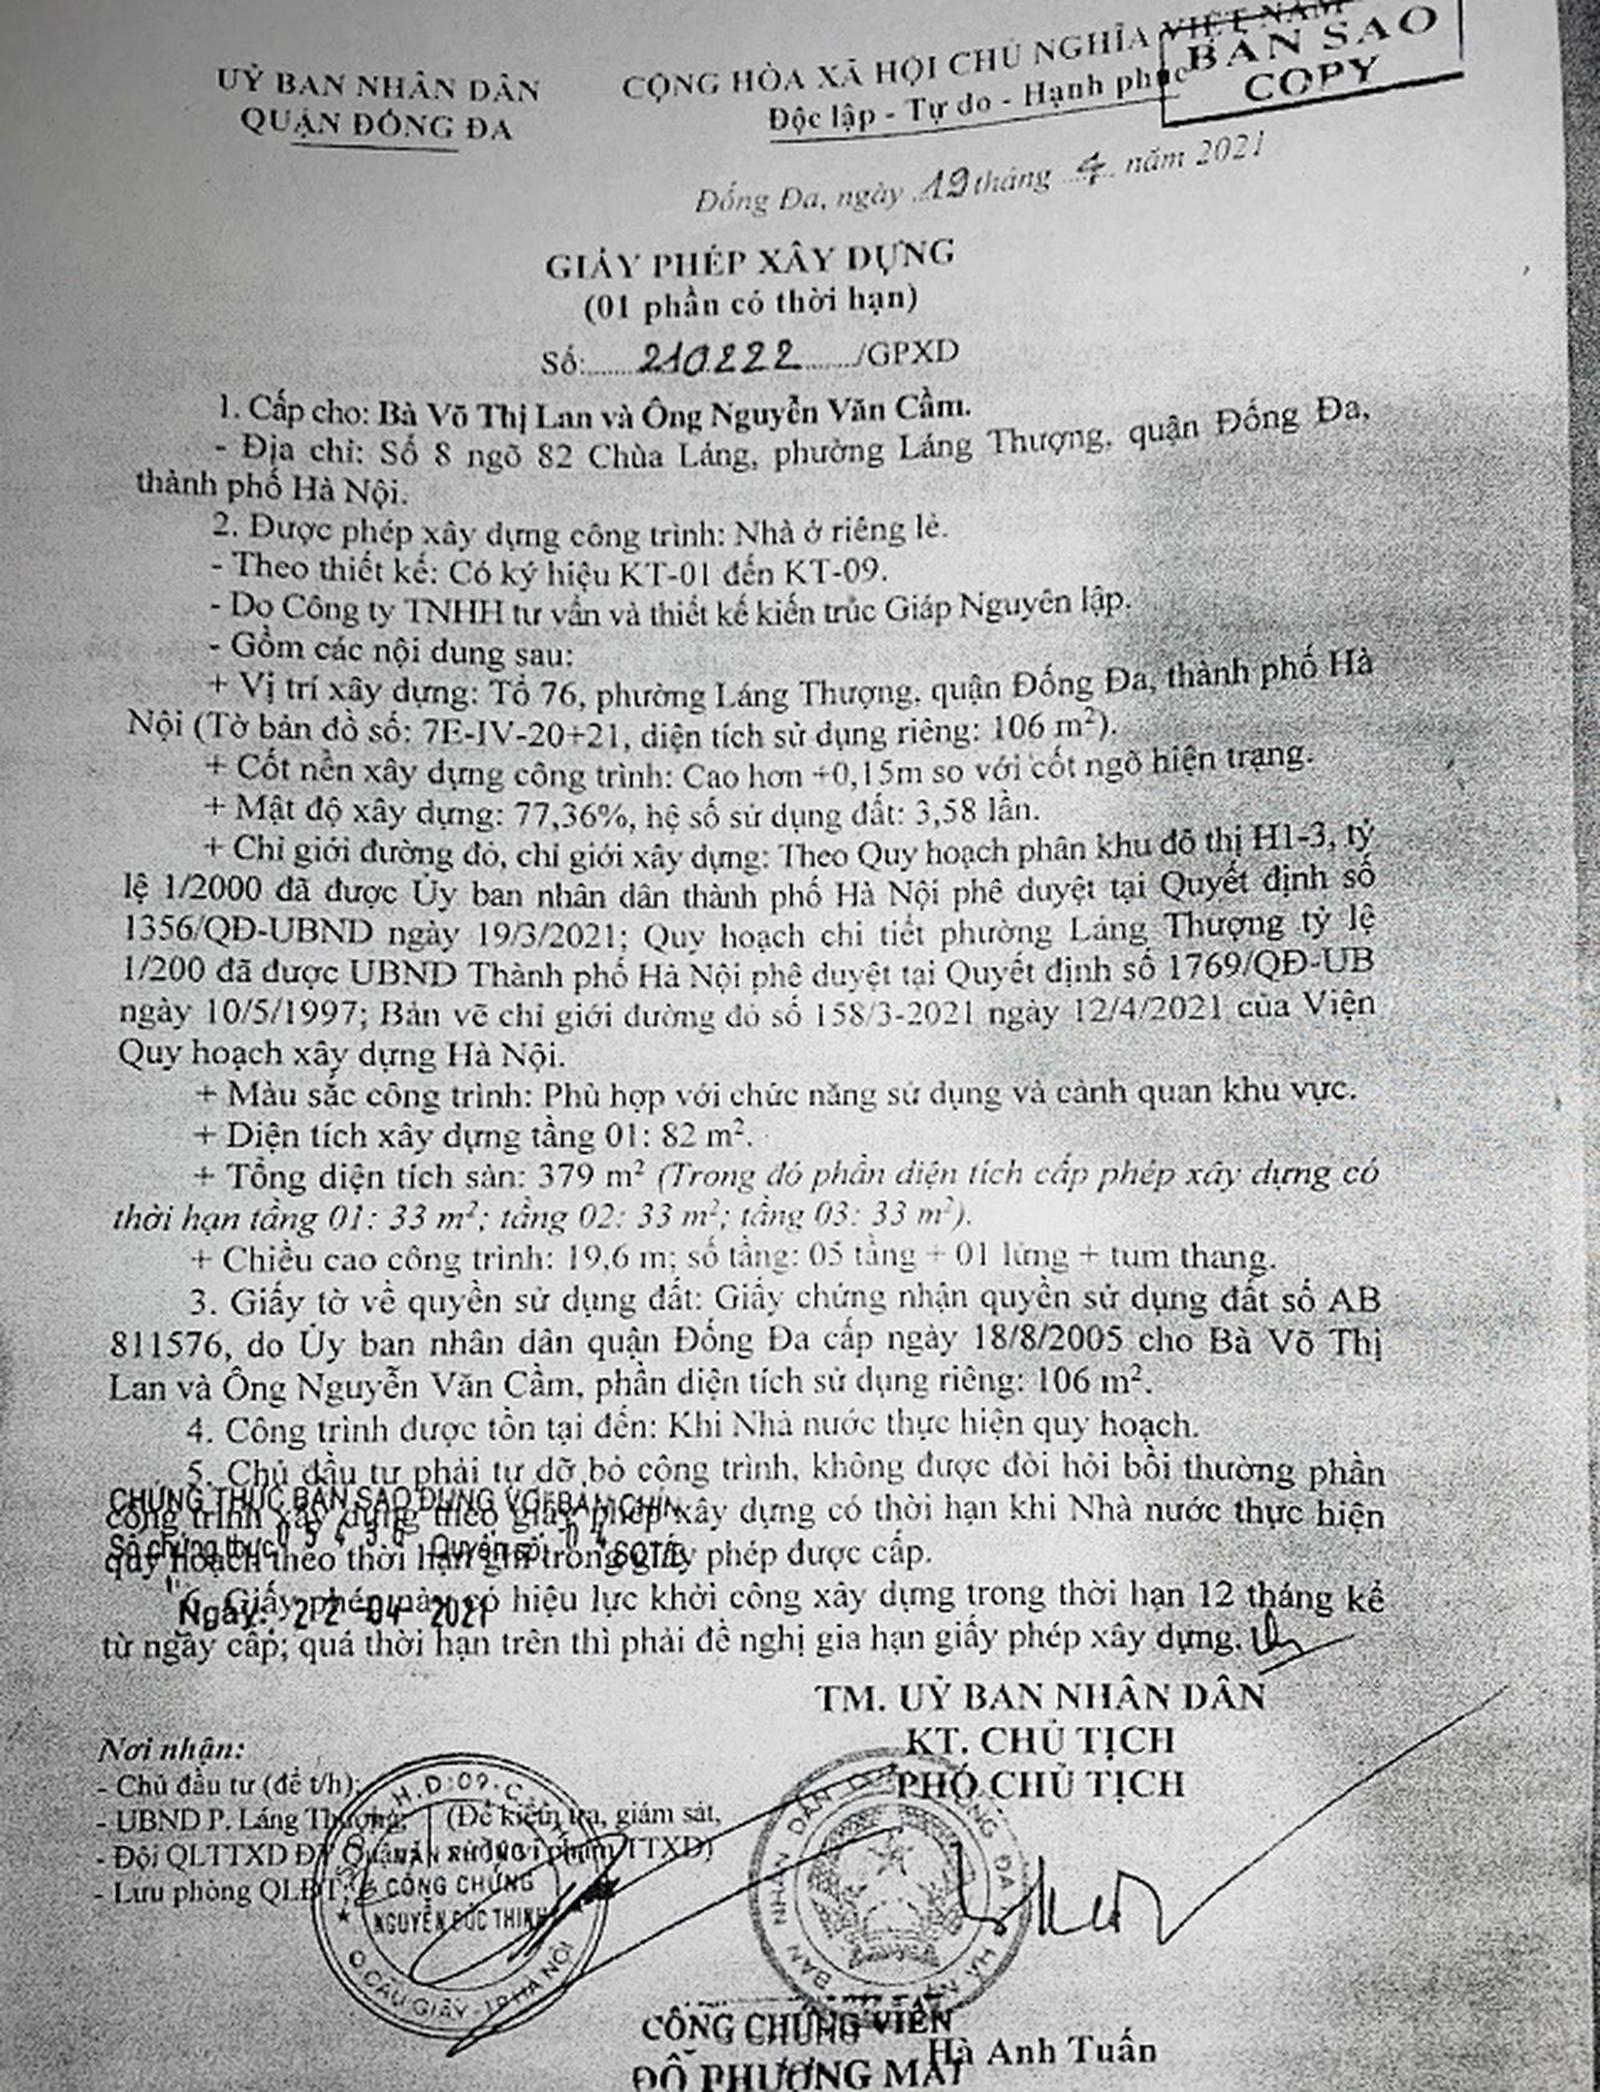 UỶ BAN NHÂN DÂN
QUẬN ĐỐNG ĐA
CỘNG HÒA XÃ HỘI CHỦ NGHĨA VIỆT NAM
Độc lập - Tự do - Hạnh phúc
BẢN SAO
COPY
Đống Đa, ngày 19 tháng 4 năm 2021
GIẤY PHÉP XÂY DỰNG
(01 phần có thời hạn)
Số: 210222 /GPXD
1. Cấp cho: Bà Võ Thị Lan và Ông Nguyễn Văn Cầm.
- Địa chỉ: Số 8 ngõ 82 Chùa Láng, phường Láng Thượng, quận Đống Đa,
thành phố Hà Nội.
2. Được phép xây dựng công trình: Nhà ở riêng lẻ.
- Theo thiết kế: Có ký hiệu KT-01 đến KT-09.
- Do Công ty TNHH tư vấn và thiết kế kiến trúc Giáp Nguyên lập.
- Gồm các nội dung sau:
+ Vị trí xây dựng: Tổ 76, phường Láng Thượng, quận Đống Đa, thành phố Hà
Nội (Tờ bản đồ số: 7E-IV-20+21, diện tích sử dụng riêng: 106 m²).
+ Cốt nền xây dựng công trình: Cao hơn +0,15m so với cốt ngõ hiện trạng.
+ Mật độ xây dựng: 77,36%, hệ số sử dụng đất: 3,58 lần.
+ Chỉ giới đường đỏ, chỉ giới xây dựng: Theo Quy hoạch phân khu đô thị H1-3, tỷ
lệ 1/2000 đã được Ủy ban nhân dân thành phố Hà Nội phê duyệt tại Quyết định số
1356/QĐ-UBND ngày 19/3/2021; Quy hoạch chi tiết phường Láng Thượng tỷ lệ
1/200 đã được UBND Thành phố Hà Nội phê duyệt tại Quyết định số 1769/QĐ-UB
ngày 10/5/1997; Bản vẽ chỉ giới đường đỏ số 158/3-2021 ngày 12/4/2021 của Viện
Quy hoạch xây dựng Hà Nội.
+ Màu sắc công trình: Phù hợp với chức năng sử dụng và cảnh quan khu vực.
+ Diện tích xây dựng tầng 01: 82 m².
+ Tổng diện tích sàn: 379 m² (Trong đó phần diện tích cấp phép xây dựng có
thời hạn tầng 01: 33 m²; tầng 02: 33 m²; tầng 03: 33 m²).
+ Chiều cao công trình: 19,6 m; số tầng: 05 tầng + 01 lửng + tum thang.
3. Giấy tờ về quyền sử dụng đất: Giấy chứng nhận quyền sử dụng đất số AB
811576, do Ủy ban nhân dân quận Đống Đa cấp ngày 18/8/2005 cho Bà Võ Thị
Lan và Ông Nguyễn Văn Cầm, phần diện tích sử dụng riêng: 106 m².
4. Công trình được tồn tại đến: Khi Nhà nước thực hiện quy hoạch.
5. Chủ đầu tư phải tự dỡ bỏ công trình, không được đòi hỏi bồi thường phần
CHỨNG THỰC BẢN SAO ĐÚNG VỚI BẢN CHÍN
công trình xây dựng theo giấy phép xây dựng có thời hạn khi Nhà nước thực hiện
Số chứng thực Quyển số: 04 SCT/B
quy hoạch theo thời hạn ghi trong giấy phép được cấp.
6. Giấy phép này có hiệu lực khởi công xây dựng trong thời hạn 12 tháng kể
Ngày: 22 -04- 2021
từ ngày cấp; quá thời hạn trên thì phải đề nghị gia hạn giấy phép xây dựng.
TM. UỶ BAN NHÂN DÂN
KT. CHỦ TỊCH
PHÓ CHỦ TỊCH
Nơi nhận:
- Chủ đầu tư (để t/h);
- UBND P. Láng Thượng; (Để kiểm tra, giám sát,
- Đội QLTTXD ĐT Quận xử lý vi phạm TTXD)
- Lưu phòng QLĐT;
VĂN PHÒNG
CÔNG CHỨNG
NGUYỄN ĐỨC THỊNH
Q.CẦU GIẤY - TP HÀ NỘI
CÔNG CHỨNG VIÊN
Hà Anh Tuấn
ĐỖ PHƯƠNG MAI